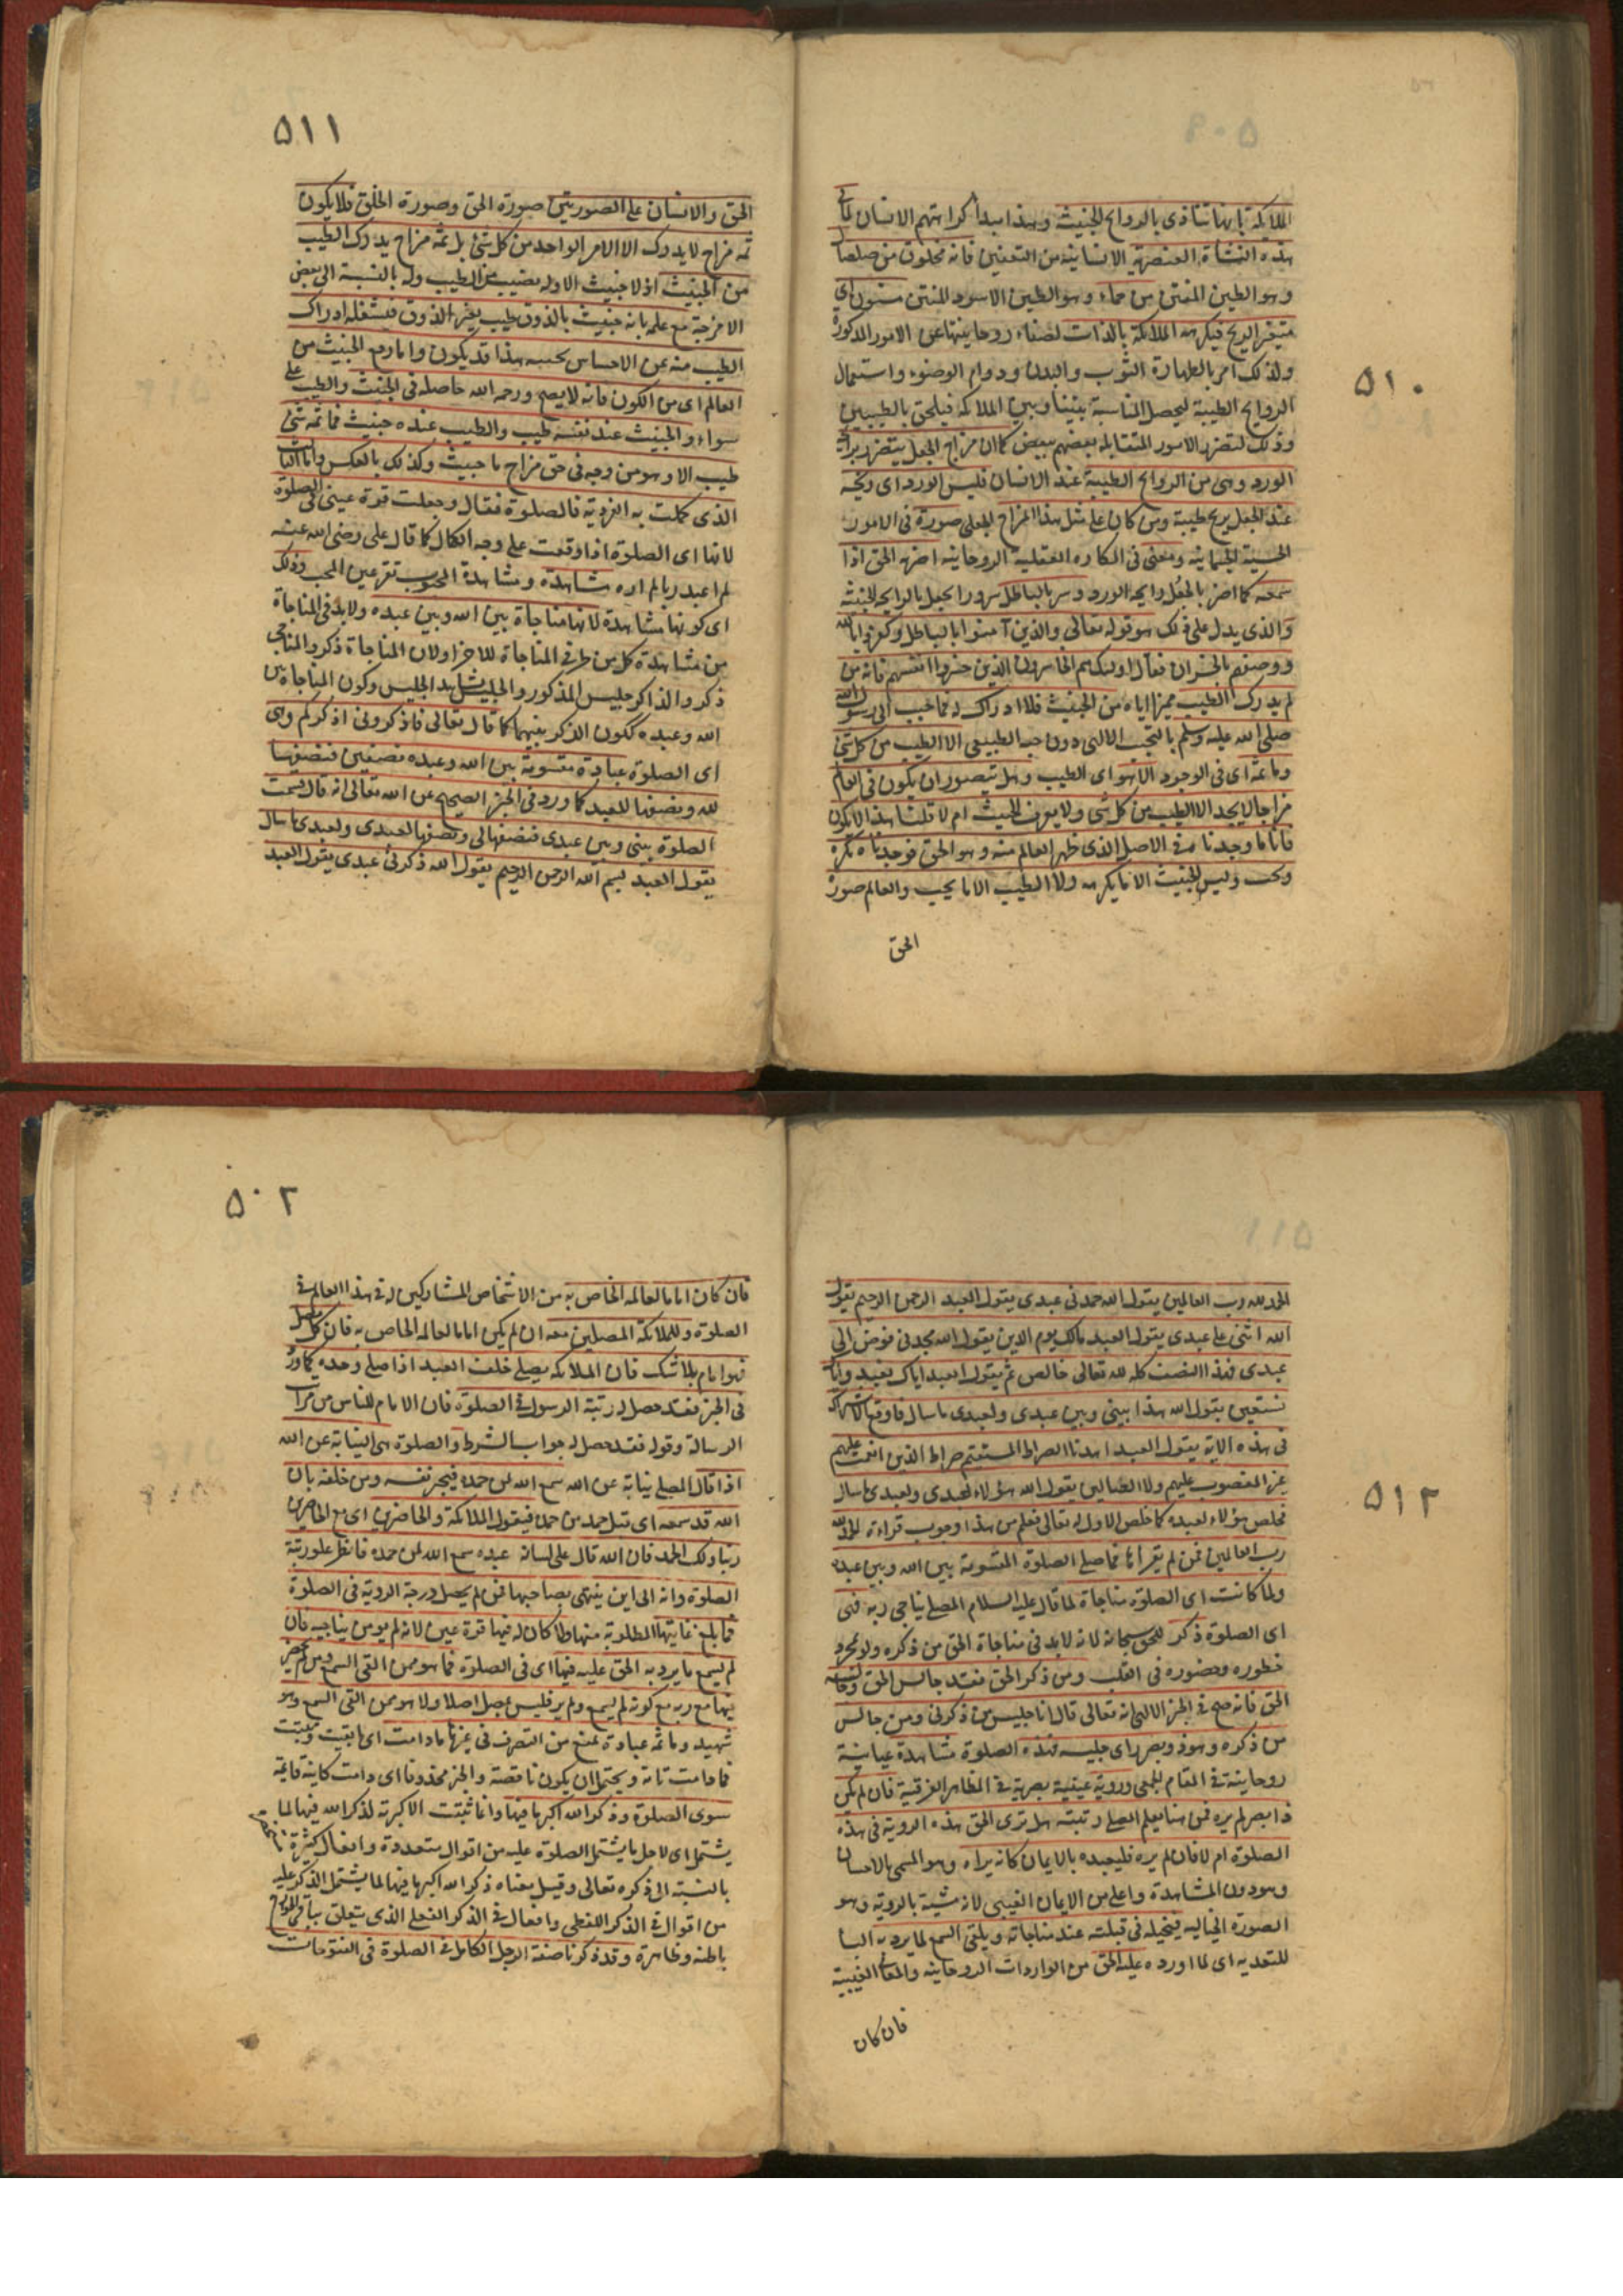 ٥١٠
الملائكة بانها تتاذى بالروايح الخبيثة وهذا مبدأ كراهتهم الانسان لما في
هذه النشأة العنصرية الانسانية من التعفين فانه مخلوق من صلصال
وهو الطين المنتن من حماء وهو الطين الاسود المنتن مسنون اي
متغير الريح فيكرهه الملائكة بالذات لصفاء روحانيتها عن الامور المذكورة
ولذلك امر بالطهارة الثوب والبدن ودوام الوضوء واستعمال
الروايح الطيبة ليحصل المناسبة بيننا وبين الملائكة فيلحق بالطيبين
وذلك لتضرر الامور المتقابلة بعضهم ببعض كما ان مزاج الجعل يتضرر برائحة
الورد وهى من الروايح الطيبة عند الانسان فليس الورد اى ريحه
عند الجعل بريح طيبة ومن كان على مثل هذا المزاج الجعلي صورة فى الامور
الحسية الجسمانية ومعنى فى المكاره العقلية الروحانية اضر به الحق اذا
سمعه كما اضر بالجعل رايحة الورد وسر بالباطل سرور الجعل بالرايحة الخبيثة
والذى يدل على ذلك هو قوله تعالى والذين آمنوا بالباطل وكفروا بالله
ووصفهم بالخسران فقال اولئك هم الخاسرون الذين خسروا انفسهم فانه من
لم يدرك الطيب مميزا اياه من الخبيث فلا ادراك له فما حبب الى رسول الله
صلى الله عليه وسلم بالتحبب الالهى دون حب الطبيعى الا الطيب من كل شئ
وما ثمة اى فى الوجود الا هو اى الطيب وهل يتصور ان يكون فى العالم
مزاج لا يجد الا الطيب من كل شئ ولا يعرف الخبيث ام لا قلنا هذا لا يكون
فانا ما وجدناه فى الاصل الذى ظهر العالم منه وهو الحق فوجدناه يكره
ويحب وليس الخبيث الا ما يكره ولا الطيب الا ما يحب والعالم صورة
الحق
٥١١
الحق والانسان على الصورتين صورة الحق وصورة الخلق فلا يكون
ثمه مزاج لا يدرك الا الامر الواحد من كل شئ بل ثمه مزاج يدرك الطيب
من الخبيث اذ لا خبيث الا وله نصيب من الطيب وله بالنسبة الى بعض
الامزجة مع علمه بانه خبيث بالذوق طيب بغير الذوق فيشغله ادراك
الطيب منه عن الاحساس بخبثه هذا قد يكون واما رفع الخبيث من
العالم اى من الكون فانه لا يصح ورحمه الله حاصله فى الخبيث والطيب على
سواء والخبيث عند نفسه طيب والطيب عنده خبيث فما ثمه شئ
طيب الا وهو من وجه فى حق مزاج ما خبيث وكذلك بالعكس واما الثالث
الذى كملت به الفردية فالصلوة فقال وجعلت قرة عينى فى الصلوة
لانها اى الصلوة اذا وقعت على وجه الكمال كما قال على رضى الله عنه
لم اعبد ربا لم اره شاهدة ومشاهدة المحبوب تقر عين المحب وذلك
اى كونها مشاهدة لانها مناجاة بين الله وبين عبده ولا بد فى المناجاة
من مشاهدة كل من طرفى المناجاة للاخر ولان المناجاة ذكر والمناجى
ذكر والذاكر جليس المذكور والجليس يشاهد الجليس وكون المناجاة بين
الله وعبده ككون الذكر بينهما كما قال تعالى فاذكرونى اذكركم وهى
اى الصلوة عبادة مقسومة بين الله وعبده نصفين فنصفها
لله ونصفها للعبد كما ورد فى الخبر الصحيح عن الله تعالى انه قال قسمت
الصلوة بينى وبين عبدى فنصفها لى ونصفها لعبدى ولعبدى ما سال
يقول العبد بسم الله الرحمن الرحيم يقول الله ذكرنى عبدى يقول العبد
٥١٢
الحمد لله رب العالمين يقول الله حمدنى عبدى يقول العبد الرحمن الرحيم يقول
الله اثنى على عبدى يقول العبد مالك يوم الدين يقول الله مجدنى فوض الى
عبدى فهذا النصف كله لله تعالى خالص ثم يقول العبد اياك نعبد واياك
نستعين يقول الله هذا بينى وبين عبدى ولعبدى ما سال فاوقع الاشتراك
فى هذه الاية يقول العبد اهدنا الصراط المستقيم صراط الذين انعمت عليهم
غير المغضوب عليهم ولا الضالين يقول الله هؤلاء لعبدى ولعبدى ما سال
فخلص هؤلاء لعبده كما خلص الاول له تعالى فعلم من هذا وجوب قراءة الحمد لله
رب العالمين فمن لم يقرأها فما صلى الصلوة المقسومة بين الله وبين عبده
ولما كانت اى الصلوة مناجاة لما قال عليه السلام المصلى يناجى ربه فهى
اى الصلوة ذكر للحق سبحانه لانه لا بد فى مناجاة الحق من ذكره ولو بمجرد
خطوره وحضوره فى القلب ومن ذكر الحق فقد جالس الحق وجالسه
الحق فانه صح فى الخبر الالهى انه تعالى قال انا جليس من ذكرنى ومن جالس
من ذكره وهو ذو بصر راى جليسه فهذه الصلوة مشاهدة عيانية
روحانية فى المقام الجمعى ورؤية عينية بصرية فى المظاهر الفرقية فان لم يكن
ذا بصر لم يره فمن هنا يعلم المصلى رتبته هل يرى الحق هذه الروية فى هذه
الصلوة ام لا فان لم يره فليعبده بالايمان كانه يراه وهو المسمى بالاحسان
وهو دون المشاهدة واعلى من الايمان الغيبى لانه شبيه بالروية وهو
الصورة الخياليه فيخيله فى قبلته عند مناجاته ويلقى السمع لما يرد به البا
للتعديه اى لما اورده عليه الحق من الواردات الروحانيه والمعانى الغيبية
فان كان
٥٠٢
فان كان اماما لعالمه الخاص به من الاشخاص المشاركين له فى هذا العالم فى
الصلوة وللملائكة المصلين معه ان لم يكن اماما لعالمه الخاص به فان كل مصل
فهو امام بلا شك فان الملائكه يصلى خلف العبد اذا صلى وحده كما ورد
فى الخبر فقد حصل له رتبة الرسول فى الصلوة فان الامام للناس من مراتب
الرسالة وقوله فقد حصل له جواب الشرط والصلوة هى النيابة عن الله
اذا قال المصلى نيابة عن الله سمع الله لمن حمده فيخبر نفسه ومن خلفه بان
الله قد سمعه اى قبل حمد من حمده فيقول الملائكة والحاضرين اى مع الحاضرين
ربنا ولك الحمد فان الله قال على لسان عبده سمع الله لمن حمده فانظر علو رتبة
الصلوة وانه الى اين ينتهى بصاحبها فمن لم يحصل درجة الروية فى الصلوة
فما بلغ غايتها المطلوبة منها ولا كان له فيها قرة عين لانه لم ير من يناجيه فان
لم يسمع ما يرد به الحق عليه فيها اى فى الصلوة فما هو ممن القى السمع ومن لم يحضر
فيها مع ربه مع كونه لم يسمع ولم ير فليس بمصل اصلا ولا هو ممن القى السمع وهو
شهيد وما ثمه عبادة تمنع من التصرف فى غيرها ما دامت اى ما بقيت وثبتت
فما دامت تامة ويحتمل ان يكون ناقصة والخبر محذوفا اى دامت كاينة قايمة
سوى الصلوة وذكر الله اكبر ما فيها وانما ثبتت الاكبرية لذكر الله فيها لما
يشتمل اى لاجل ما يشتمل الصلوة عليه من اقوال متعددة وافعال كثيرة
بالنسبة الى ذكره تعالى وقيل معناه ذكر الله اكبر ما فيها لما يشتمل الذكر عليه
من اقوال فى الذكر اللفظى وافعال فى الذكر الفعلى الذى يتعلق بباقى الجوارح
باطنه وظاهرة وقد ذكرنا صفة الرجل الكامل فى الصلوة فى الفتوحات